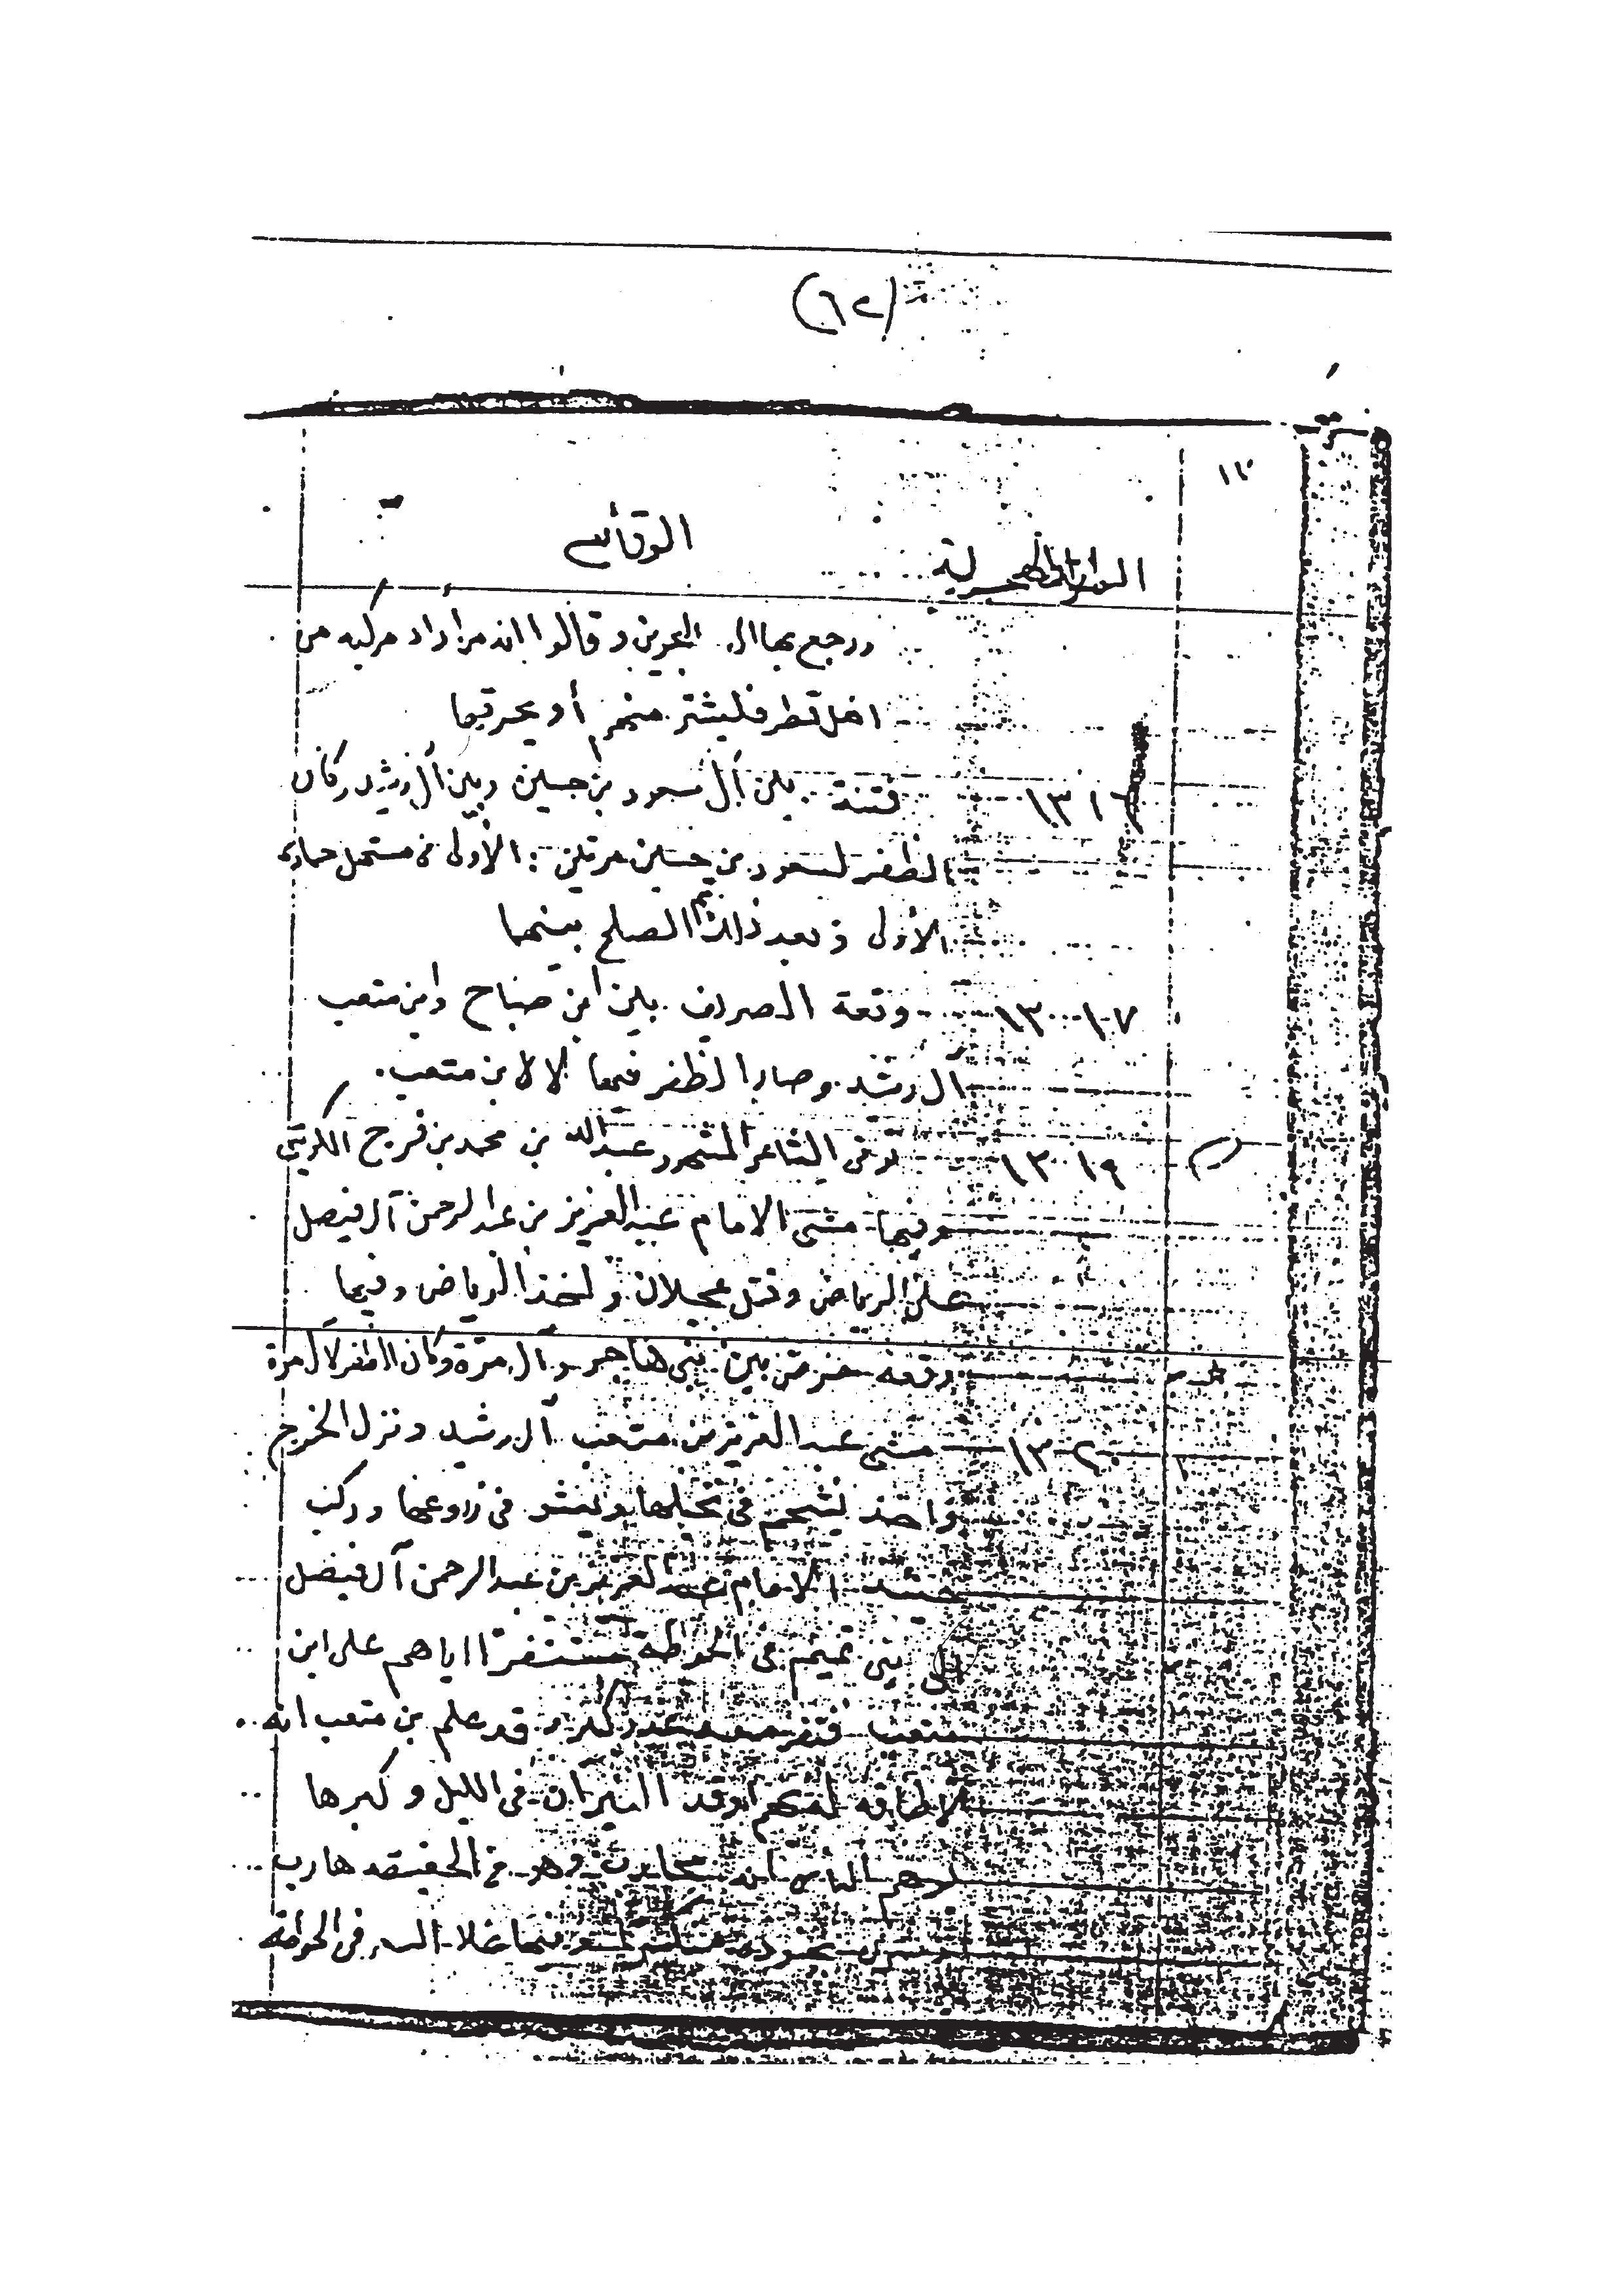 (٦٢)
الوقائع
ورجع بها الى البحرين وقالوا انه من أراد مركبه من
اهل قطر فليشتر منهم أو يحرقها
١٣١٦ فتنة بين آل سعود بن حسين وبين آل رشيد وكان
الظفر لسعود بن حسين مرتين : الأولى في مستهل جمادى
الأولى وبعد ذلك تم الصلح بينهما
١٣١٧ وقعة الصريف بين ابن صباح وابن متعب
آل رشيد وصار الظفر فيها لابن متعب.
١٣١٩ توفى الشاعر المشهور عبدالله بن محمد بن فرج الكويتي
وفيها مشى الامام عبدالعزيز بن عبدالرحمن آل فيصل
على الرياض وقتل عجلان واخذ الرياض وفيها
وقعة بين بني هاجر وآل مرة وكان الظفر لآل مرة
١٣٢٠ مشى عبدالعزيز بن متعب آل رشيد ونزل الخرج
واخذ في نخيلها في زروعها وركب
الامام عبدالعزيز بن عبدالرحمن آل فيصل
الى بني تميم في الحوطة مستنفرا اياهم على ابن
متعب فنفر معه عدد كبير وقد علم بن متعب انه
لا طاقة له بهم أوقد النيران في الليل وكبرها
ليوهم الناس انه محارب وهو في الحقيقة هارب
في الحوطة